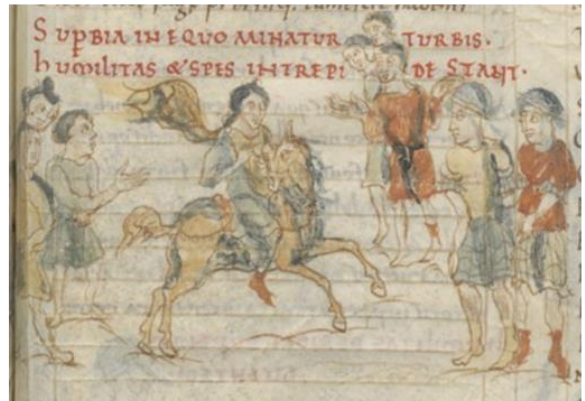 SUꝑBIA IN EQUO MINATUR TURBIS·
hUMILITAS & SPES INTREPI DE STANT·